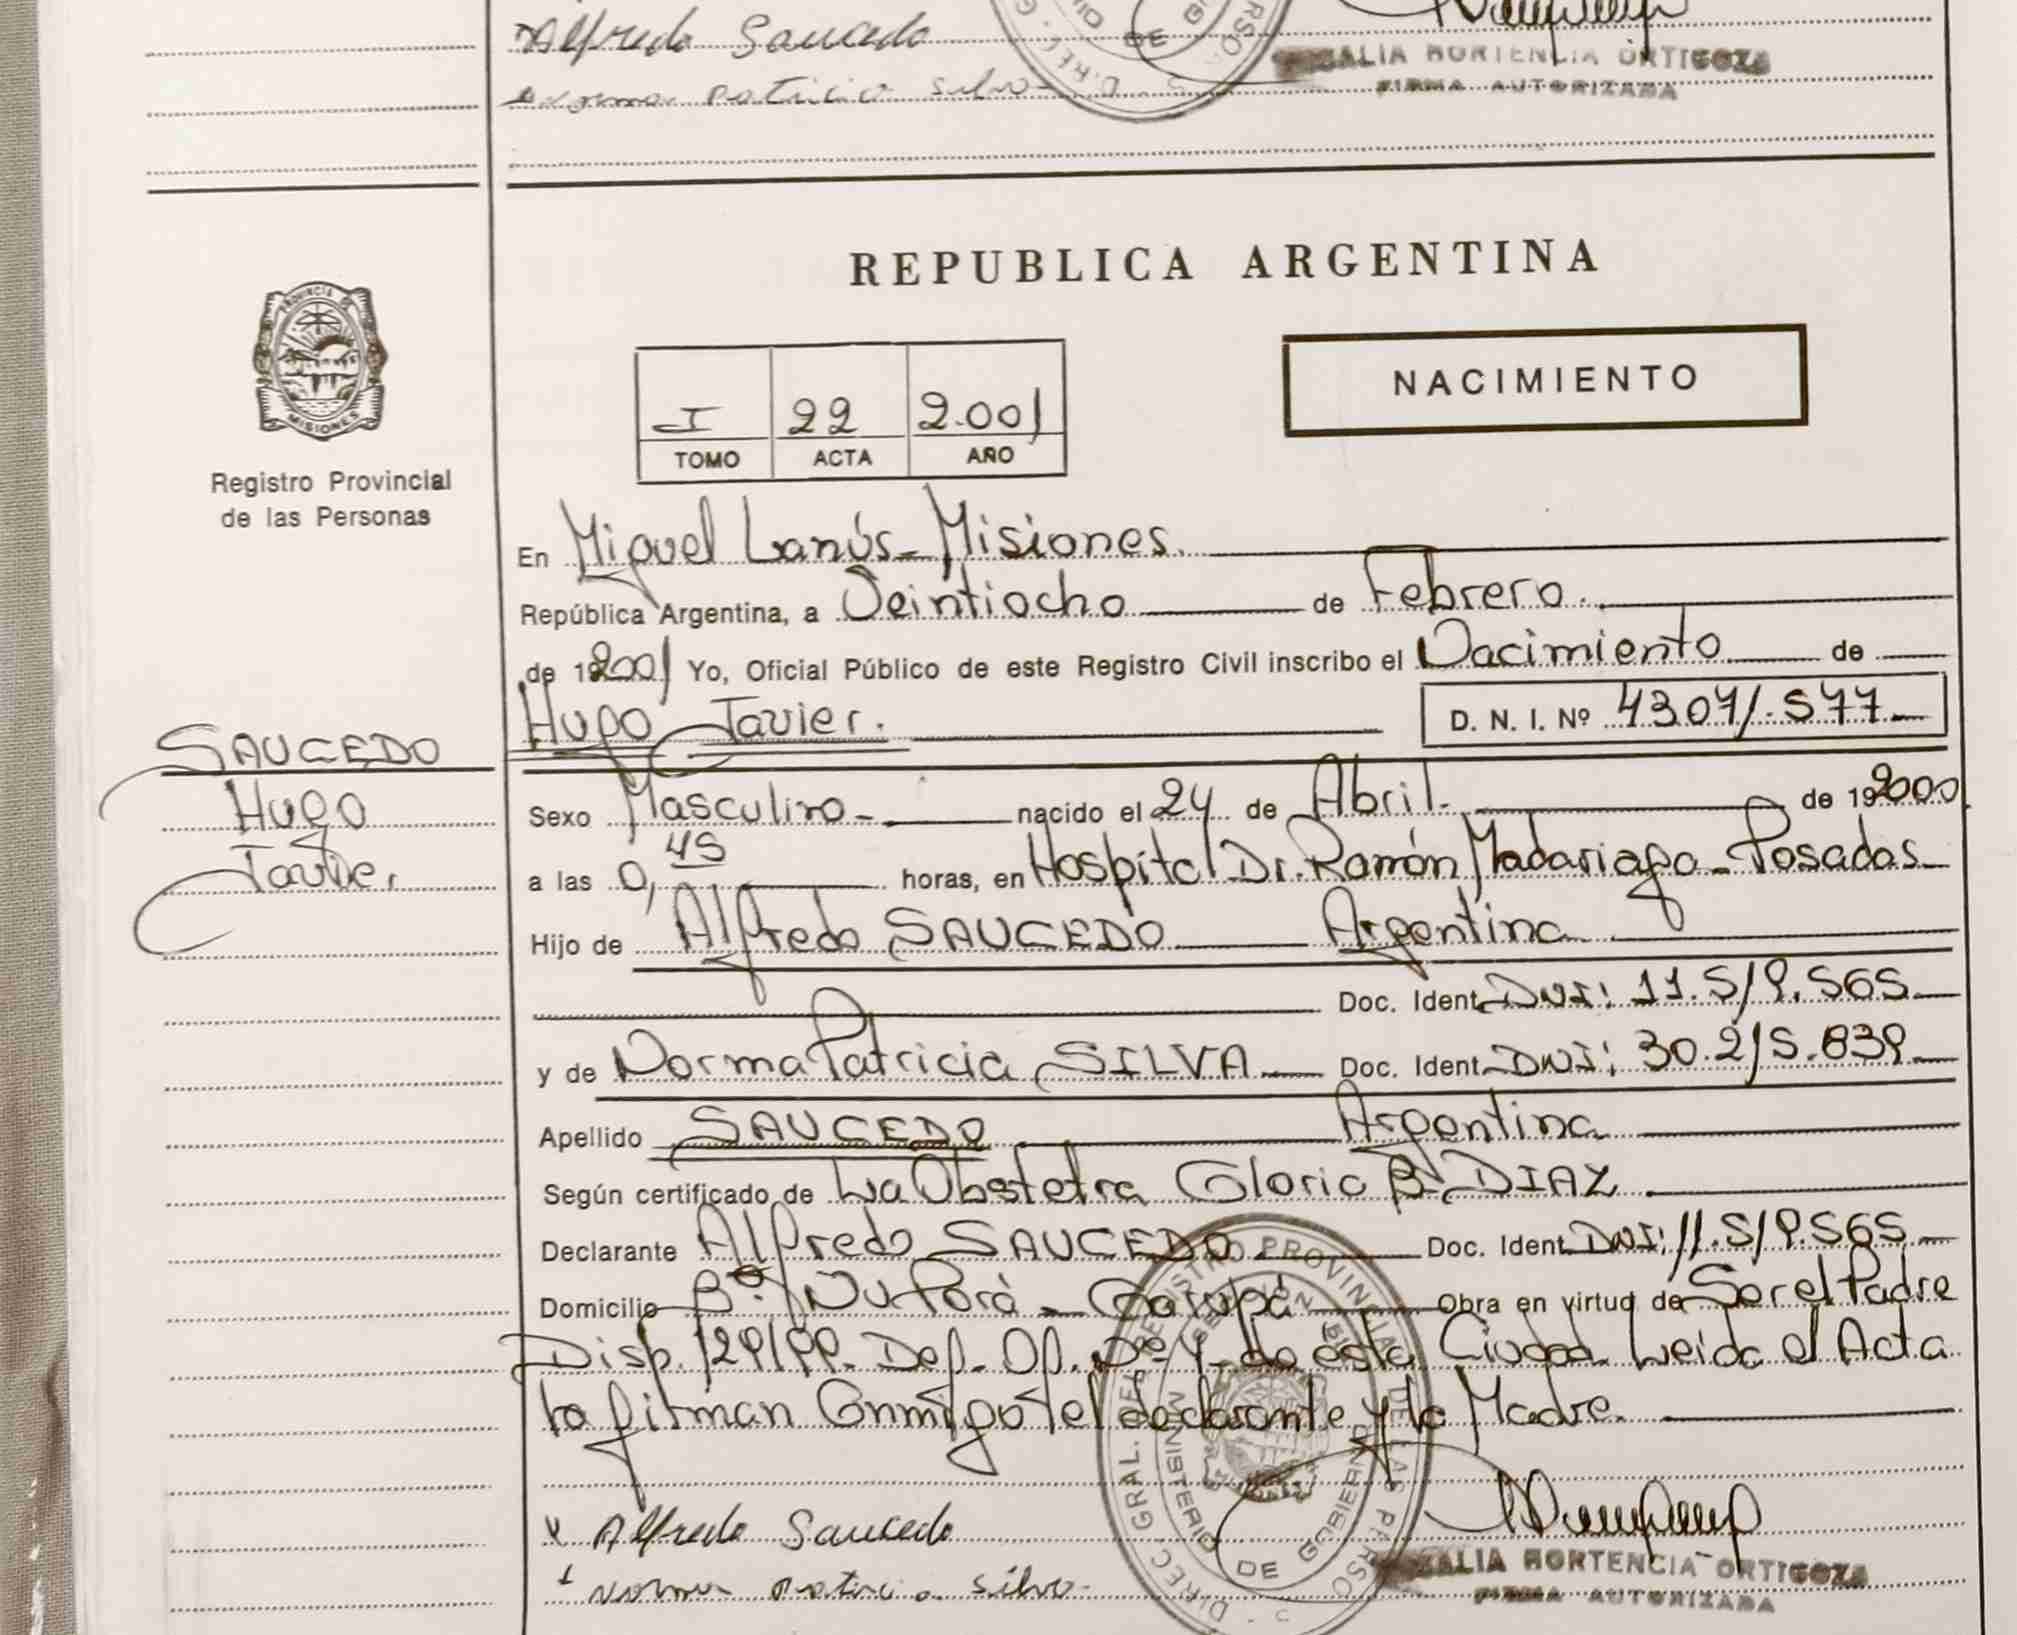 Alfredo Saucedo
Norma Patricia Silva
ROSALIA HORTENCIA ORTIGOZA
FIRMA AUTORIZADA
REPUBLICA ARGENTINA
PROVINCIA DE
MISIONES
Registro Provincial
de las Personas
NACIMIENTO
I 22 2.001
TOMO ACTA AÑO
En Miguel Lanús - Misiones.
República Argentina, a Veintiocho de Febrero.
de 19 2001 Yo, Oficial Público de este Registro Civil inscribo el Nacimiento de
Hugo Javier. D. N. I. Nº 43071.577
SAUCEDO
Hugo
Javier
Sexo Masculino - nacido el 24 de Abril. de 19 2000
a las 0,45 horas, en Hospital Dr. Ramón Madariaga - Posadas
Hijo de Alfredo SAUCEDO Argentina
Doc. Ident. DNI: 11.519.565
y de Norma Patricia SILVA Doc. Ident. DNI: 30.215.839
Apellido SAUCEDO Argentina
Según certificado de La Obstetra Gloria B. DIAZ
Declarante Alfredo SAUCEDO. Doc. Ident. DNI: 11.519.565
Domicilio Bº Ñu Porá - Garupá Obra en virtud de Ser el Padre
Disp. 129/99. Def. Of. Nº 4 de esta Ciudad. Leida el Acta
la firman Conmigo el declarante y la Madre.
x Alfredo Saucedo
x Norma Patricia Silva
DIREC. GRAL. DEL REGISTRO PROVINCIAL DE LAS PERSO
MINISTERIO DE GOBIERNO
ROSALIA HORTENCIA ORTIGOZA
FIRMA AUTORIZADA